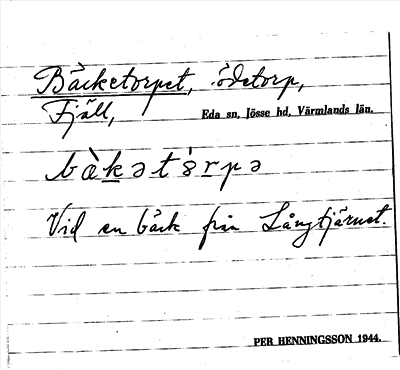 Bäcketorpet, ödetorp,
Fjäll,
Eda sn, Jösse hd, Värmlands län.
bæ̀kəts̀rpə
Vid en bäck från Långtjärnet.
PER HENNINGSSON 1944.